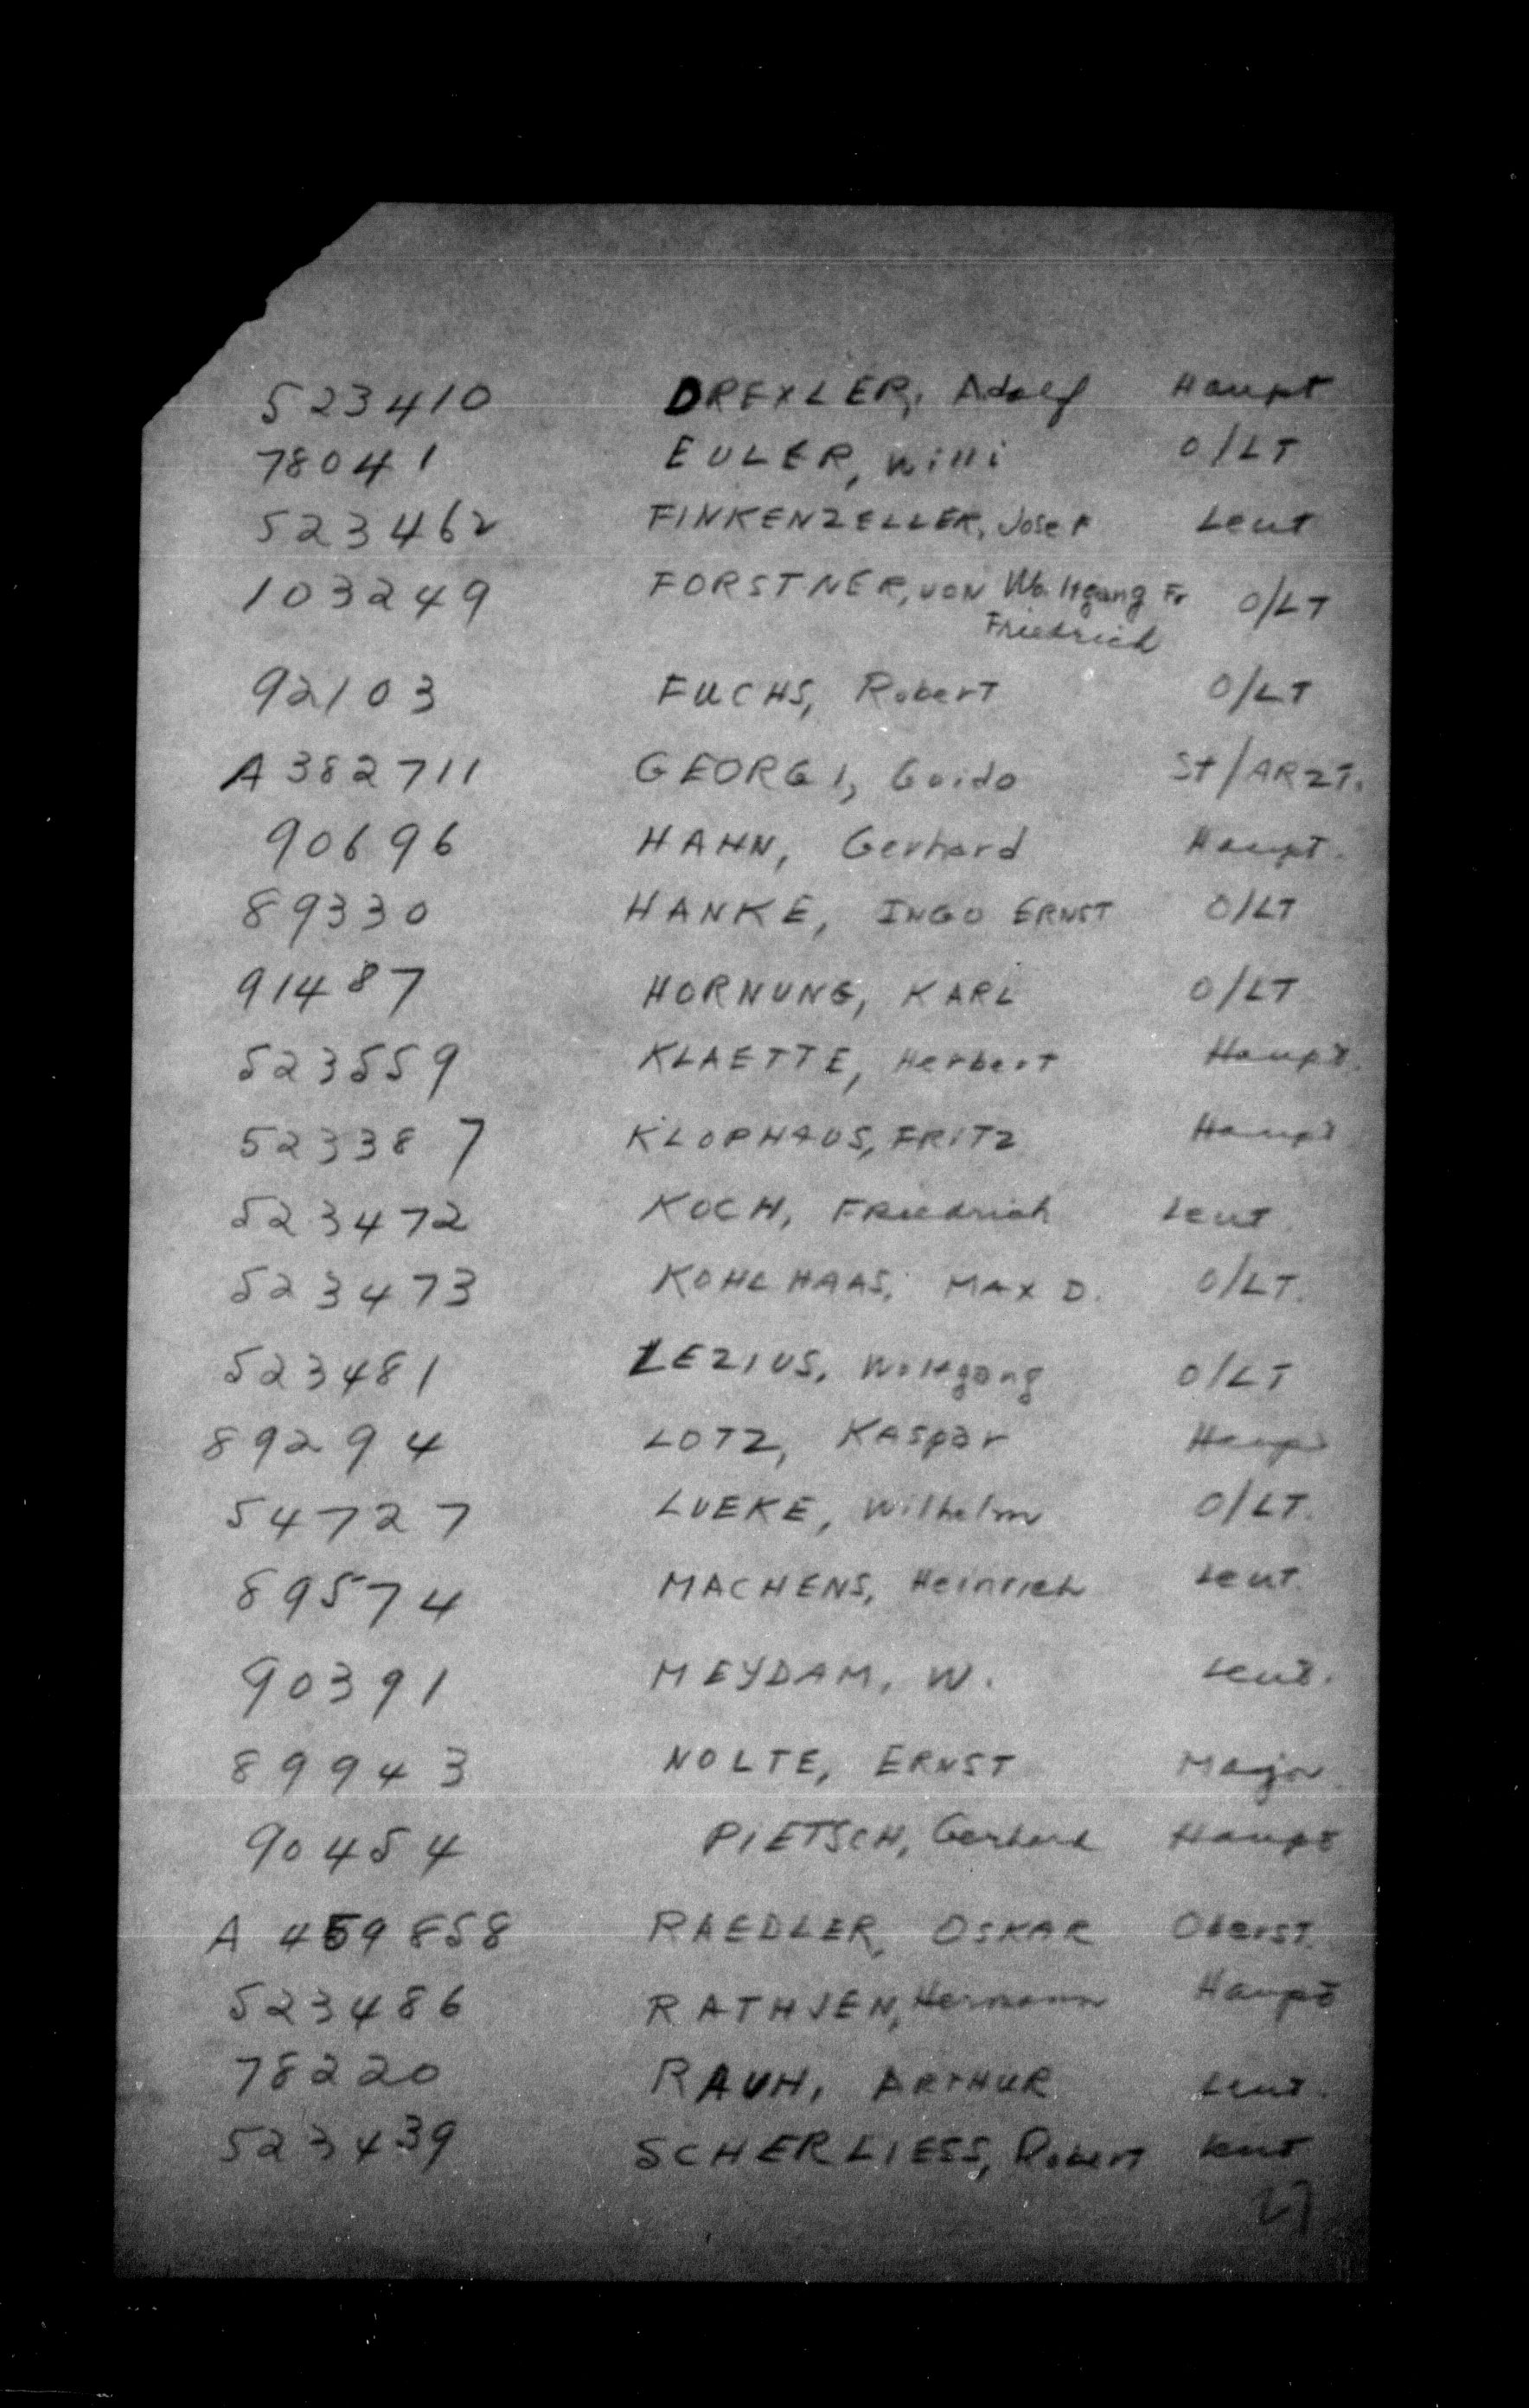 523410 DREXLER, Adolf Haupt
78041 EULER, Willi O/LT
523462 FINKENZELLER, Josef Leut
103249 FORSTNER, VON Wolfgang Fr O/LT
Friedrich
92103 FUCHS, Robert O/LT
A 382711 GEORGI, Guido St/ARZT.
90696 HAHN, Gerhard Haupt.
89330 HANKE, INGO ERNST O/LT
91487 HORNUNG, KARL O/LT
523559 KLAETTE, Herbert Haupt.
523387 KLOPHAUS, FRITZ Haupt
523472 KOCH, Friedrich Leut
523473 KOHLHAAS, MAX D. O/LT.
523481 LEZIUS, Wolfgang O/LT
89294 LOTZ, Kaspar Haupt
54727 LUEKE, Wilhelm O/LT.
89574 MACHENS, Heinrich Leut.
90391 MEYDAM, W. Leut.
89943 NOLTE, ERNST Major
90454 PIETSCH, Gerhard Haupt
A 459858 RAEDLER, OSKAR Oberst.
523486 RATHJEN, Hermann Haupt
78220 RAUH, ARTHUR Leut.
523439 SCHERLIESS, Robert Leut